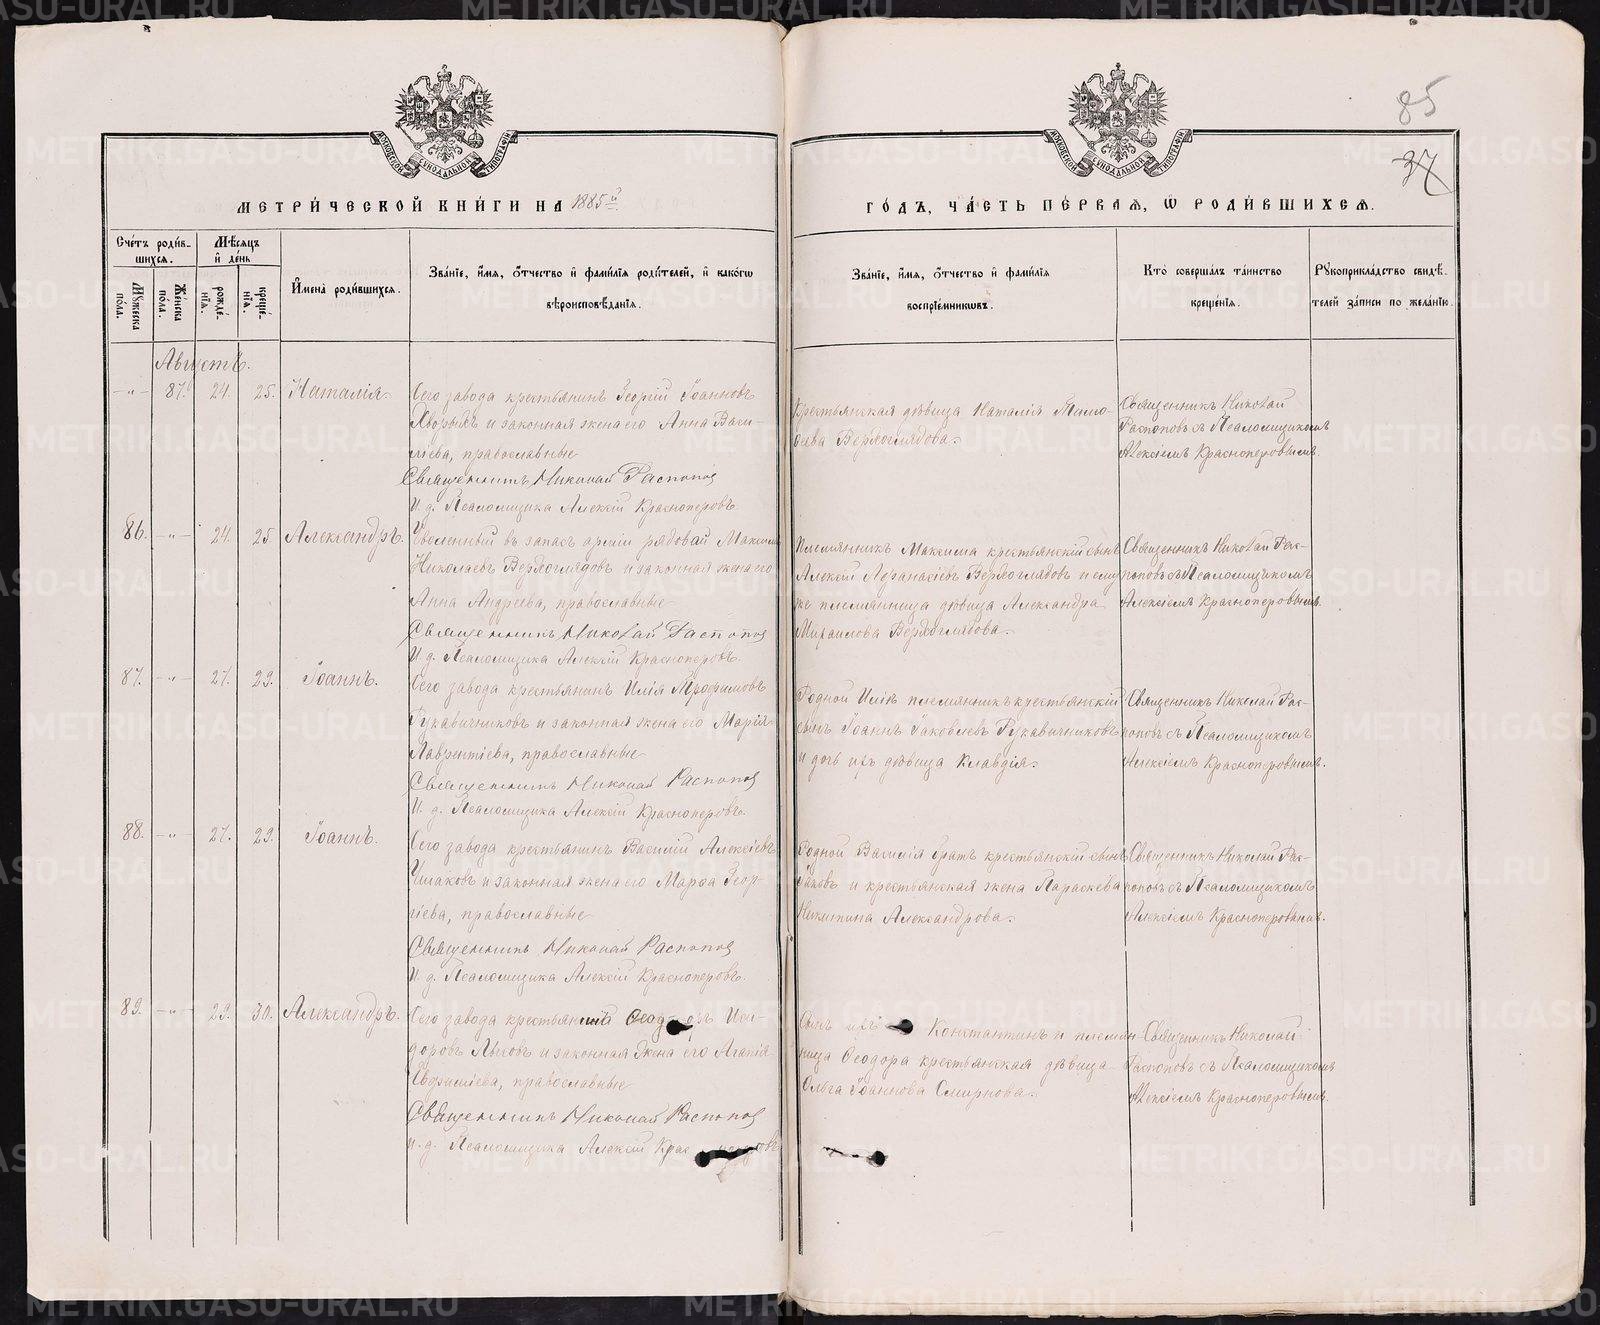 85
37
МЕТРИ́ЧЕСКОЙ КНИ́ГИ НА 1885й
ГО́ДЪ, ЧА́СТЬ ПЕ́РВАЯ, Ѡ РОДИ́ВШИХСЯ.
Сче́тъ роди́в-
шихся.
Мѣ́сяцъ
и де́нь
Му́жеска по́ла.
Же́нска по́ла.
рожде́нія.
креще́нія.
И҆мена̀ роди́вшихся.
Зва́ніе, и҆́мя, ѻ҆́тчество и҆ фами́лія роди́телей, и҆ како́гѡ
вѣроисповѣ́данія.
Зва́ніе, и҆́мя, ѻ҆́тчество и҆ фами́лія
воспріе́мникѡвъ.
Кто̀ соверша́лъ та́инство
креще́нія.
Рꙋкоприкла́дство свидѣ́-
телей за́писи по жела́нію.
Августъ.
—„— 87. 24. 25. Наталія
Сего завода крестьянинъ Георгій Іоанновъ
и законная жена его Анна Васи-
ліева, православные
Священникъ Николай Распопов
И. д. Псаломщика Алексій Красноперовъ.
Крестьянская дѣвица Наталія Тимо-
ѳеева Верхоглядова.
Священникъ Николай
Распоповъ съ Псаломщикомъ
Алексіемъ Красноперовымъ.
86. —„— 24. 25. Александръ.
Уволенный въ запасъ арміи рядовой Максимъ
Николаевъ Верхоглядовъ и законная жена его
Анна Андреева, православные
Священникъ Николай Распопов
И. д. Псаломщика Алексій Красноперовъ.
Племянникъ Максима крестьянскій сынъ
Алексій Аѳанасіевъ Верхоглядовъ и ему
же племянница дѣвица Александра
Михаилова Верхоглядова.
Священникъ Николай Рас-
поповъ съ Псаломщикомъ
Алексіемъ Красноперовымъ.
87. —„— 27. 29. Іоаннъ.
Сего завода крестьянинъ Илія Трофимовъ
Рукавичниковъ и законная жена его Марія
Лаврентіева, православные
Священникъ Николай Распопов
И. д. Псаломщика Алексій Красноперовъ.
Родной Иліи племянникъ крестьянскій
сынъ Іоаннъ Іаковлевъ Рукавичниковъ
и дочь ихъ дѣвица Клавдія.
Священникъ Николай Рас-
поповъ съ Псаломщикомъ
Алексіемъ Красноперовымъ.
88. —„— 27. 29. Іоаннъ.
Сего завода крестьянинъ Василій Алексіевъ
и законная жена его Марѳа Геор-
гіева, православные
Священникъ Николай Распопов
И. д. Псаломщика Алексій Красноперовъ.
Родной Василія братъ крестьянскій сынъ
Іаковъ и крестьянская жена Параскева
Никитина Александрова.
Священникъ Николай Рас-
поповъ съ Псаломщикомъ
Алексіемъ Красноперовымъ.
89. —„— 29. 30. Александръ.
Сего завода крестьянинъ Ѳеодоръ Иси-
доровъ и законная жена его Агапія
православные
Священникъ Николай Распопов
И. д. Псаломщика Алексій Красноперовъ
Сынъ ихъ Константинъ и племян-
ница Ѳеодора крестьянская дѣвица
Ольга Іоаннова Смирнова.
Священникъ Николай
Распоповъ съ Псаломщикомъ
Алексіемъ Красноперовымъ.